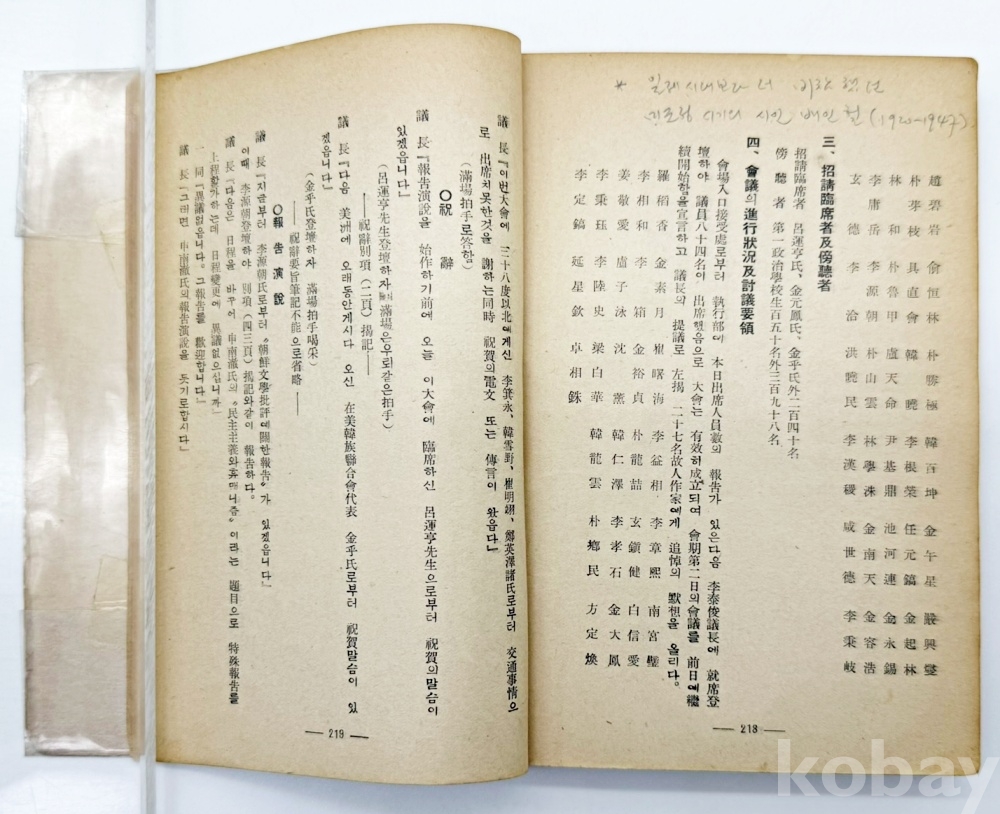 * 일제시대보다 더
미군정 시기의 시인 배인철 (1920~1947)
趙碧岩 兪恒林 朴勝極 韓百坤 金午星 嚴興燮
朴芽枝 具直會 韓曉 李根榮 任元鎬 金起林
林和 朴魯甲 盧天命 尹基鼎 池河連 金永錫
李庸岳 李源朝 朴山雲 林學洙 金南天 金容浩
玄德 李洽 洪曉民 李漢稷 咸世德 李秉岐
三、招請臨席者及傍聽者
招請臨席者 呂運亨氏、金元鳳氏、金乎氏外二百四十名
傍聽者 第一政治學校生百五十名外三百九十八名
四、會議의進行狀況及討議要領
會場入口接受處로부터 執行部에 本日出席人員數의 報告가 있은다음 李泰俊議長에 就席登
壇하야 議員八十四名이 出席했음으로 大會는 有效히成立되여 會期第二日의會議를 前日에繼
續開始함을宣言하고 議長의 提議로 左揭 二十七名故人作家에게 追悼의 默想을 올리다。
羅稻香 金素月 崔曙海 李益相 李章熙 南宮璧
李相和 李箱 金裕貞 朴龍喆 玄鎭健 白信愛
姜敬愛 盧子泳 沈薰 韓仁澤 李孝石 金大鳳
李秉珏 李陸史 梁白華 韓龍雲 朴鄕民 方定煥
李定鎬 延星欽 卓相銖
— 218 —
議長『이번大會에 三十八度以北에게신 李箕永、韓雪野、崔明翊、鄭英澤諸氏로부터 交通事情으
로 出席치못한것을 謝하는同時 祝賀의電文 또는 傳言이 왔음다』
(滿場拍手로答함)
〇祝辭
議長『報告演說을 始作하기前에 오늘 이大會에 臨席하신 呂運亨先生으로부터 祝賀의말슴이
있겠읍니다』
(呂運亨先生登壇하자 滿場은우뢰같은拍手)
——祝辭別項(二頁)揭記——
議長『다음 美洲에 오래동안게시다 오신 在美韓族聯合會代表 金乎氏로부터 祝賀말슴이 있
겠읍니다』
(金乎氏登壇하자 滿場拍手喝采)
——祝辭要旨筆記不能으로省略——
〇報告演說
議長『지금부터 李源朝氏로부터〝朝鮮文學批評에關한報告〟가 있겠읍니다』
이때 李源朝登壇하야 別項(四三頁)揭記와같이 報告하다。
議長『다음은 日程을 바꾸어 申南澈氏의〝民主主義와휴매니즘〟이라는 題目으로 特殊報告를
上程할가하는데 日程變更에 異議없으십니까』
一同『異議없읍니다。그報告를 歡迎합니다』
議長『그러면 申南澈氏의報告演說을 듯기로합시다』
— 219 —
kobay